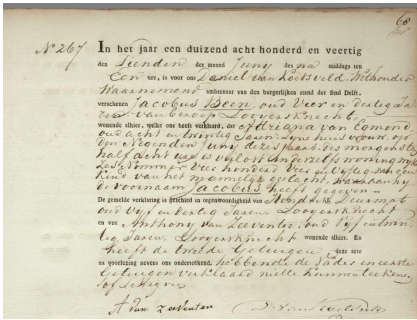 68
No 267
In het jaar een duizend acht honderd en veertig
den Tienden der maand Juny des na middags ten
Een ure, is voor ons Daniel van Koetsveld Wethouder
Waarnemend ambtenaar van den burgerlijken stand der Stad Delft,
verschenen Jacobus Been, oud Vier en dertig Ja-
ren van beroep Looyersknecht
wonende alhier, welke ons heeft verklaard, dat Adriana van Egmond
oud acht en dertig Jaren zyne huisvrouw, op
den Negenden Juny dezes jaars des morgens te
half acht ure is verlost in derzelfs woning wyk
Zes Nommer Vier honderd Vier en vyftig van een
Kind van het mannelijk geslacht, waaraan hy
de voornaam Jacobus heeft gegeven
De gemelde verklaring is geschied in tegenwoordigheid van Hendrik
oud Vyf en dertig Jaren Looyersknecht
en van Anthony van Zeeventer, oud Vyf en
tig Jaren Looyersknecht wonende alhier. En
heeft de tweede Getuigen deze acte
na voorlezing nevens ons onderteekend, hebbende de Vader en eerste
Getuigen verklaard niet te kunnen teekenen
of schryven
A van zeeventer